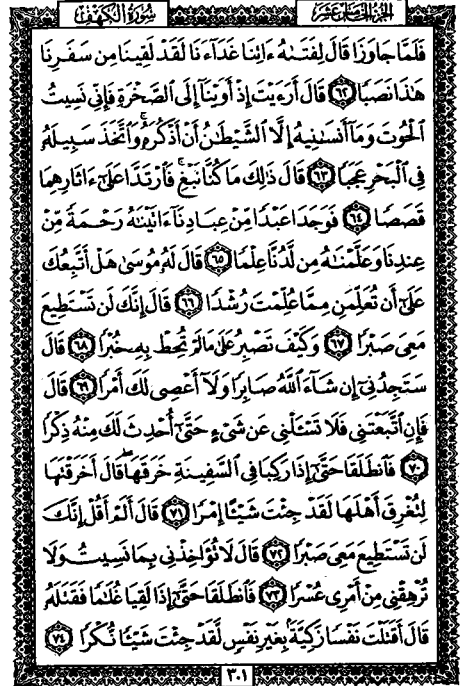 الجزء الخامس عشر
سورة الكهف
فَلَمَّا جَاوَزَا قَالَ لِفَتَىٰهُ ءَاتِنَا غَدَآءَنَا لَقَدْ لَقِينَا مِن سَفَرِنَا
هَٰذَا نَصَبًا ٦٢ قَالَ أَرَءَيْتَ إِذْ أَوَيْنَآ إِلَى ٱلصَّخْرَةِ فَإِنِّي نَسِيتُ
ٱلْحُوتَ وَمَآ أَنسَىٰنِيهُ إِلَّا ٱلشَّيْطَٰنُ أَنْ أَذْكُرَهُۥ وَٱتَّخَذَ سَبِيلَهُۥ
فِي ٱلْبَحْرِ عَجَبًا ٦٣ قَالَ ذَٰلِكَ مَا كُنَّا نَبْغِ فَٱرْتَدَّا عَلَىٰٓ ءَاثَارِهِمَا
قَصَصًا ٦٤ فَوَجَدَا عَبْدًا مِّنْ عِبَادِنَآ ءَاتَيْنَٰهُ رَحْمَةً مِّنْ
عِندِنَا وَعَلَّمْنَٰهُ مِن لَّدُنَّا عِلْمًا ٦٥ قَالَ لَهُۥ مُوسَىٰ هَلْ أَتَّبِعُكَ
عَلَىٰٓ أَن تُعَلِّمَنِ مِمَّا عُلِّمْتَ رُشْدًا ٦٦ قَالَ إِنَّكَ لَن تَسْتَطِيعَ
مَعِيَ صَبْرًا ٦٧ وَكَيْفَ تَصْبِرُ عَلَىٰ مَا لَمْ تُحِطْ بِهِۦ خُبْرًا ٦٨ قَالَ
سَتَجِدُنِيٓ إِن شَآءَ ٱللَّهُ صَابِرًا وَلَآ أَعْصِي لَكَ أَمْرًا ٦٩ قَالَ
فَإِنِ ٱتَّبَعْتَنِي فَلَا تَسْـَٔلْنِي عَن شَيْءٍ حَتَّىٰٓ أُحْدِثَ لَكَ مِنْهُ ذِكْرًا
٧٠ فَٱنطَلَقَا حَتَّىٰٓ إِذَا رَكِبَا فِي ٱلسَّفِينَةِ خَرَقَهَا قَالَ أَخَرَقْتَهَا
لِتُغْرِقَ أَهْلَهَا لَقَدْ جِئْتَ شَيْـًٔا إِمْرًا ٧١ قَالَ أَلَمْ أَقُلْ إِنَّكَ
لَن تَسْتَطِيعَ مَعِيَ صَبْرًا ٧٢ قَالَ لَا تُؤَاخِذْنِي بِمَا نَسِيتُ وَلَا
تُرْهِقْنِي مِنْ أَمْرِي عُسْرًا ٧٣ فَٱنطَلَقَا حَتَّىٰٓ إِذَا لَقِيَا غُلَٰمًا فَقَتَلَهُۥ
قَالَ أَقَتَلْتَ نَفْسًا زَكِيَّةًۢ بِغَيْرِ نَفْسٍ لَّقَدْ جِئْتَ شَيْـًٔا نُّكْرًا ٧٤
٣٠١